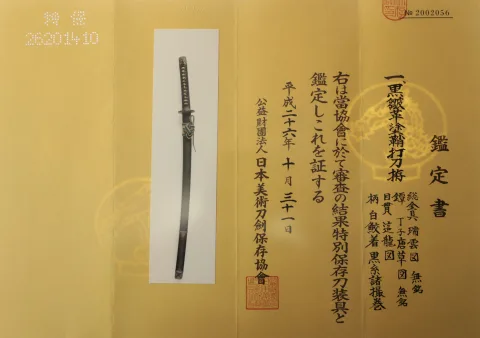 № 2002056
鑑定書
一、黒皺革塗鞘打刀拵
総金具 瑞雲図 無銘
鐔 丁子唐草図 無銘
目貫 這龍図
柄 白鮫着 黒糸諸撮巻
右は當協會に於て審査の結果特別保存刀装具と
鑑定しこれを証する
平成二十六年 十月 三十一日
公益財團法人 日本美術刀劍保存協會
特保
26201410